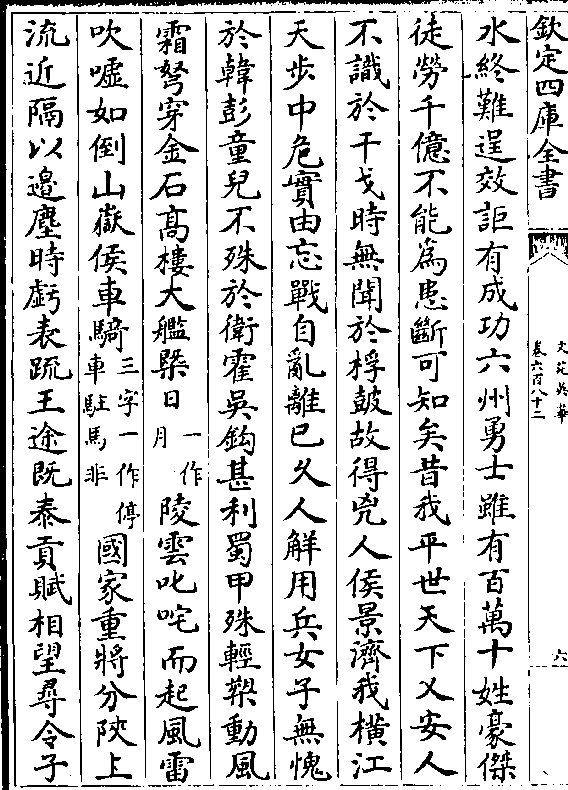 欽定四庫全書
文苑英華
卷六百八十二
六
水終難逞效詎有成功六州勇士雖有百萬十姓豪傑
徒勞千億不能為患斷可知矣昔我平世天下乂安人
不識於干戈時無聞於桴鼓故得兇人侯景濟我橫江
天步中危實由忘戰自亂離已久人解用兵女子無愧
於韓彭童兒不殊於衛霍吳鈎甚利蜀甲殊輕槊動風
霜弩穿金石髙樓大艦槩日一作月陵雲叱咤而起風雷
吹噓如倒山嶽侯車騎三字一作停車駐馬非國家重將分陜上
流近隔以邉塵時虧表疏王途既泰貢賦相望尋令子